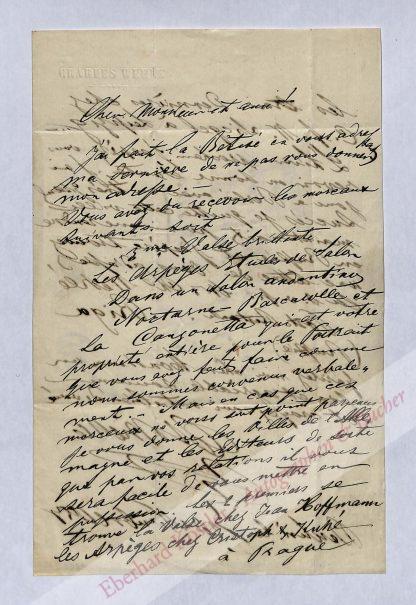 CHARLES WEHLE
Cher Monsieur et ami!
J'ai fait la Bêtise en vous adres
ma dernière de ne pas vous donner
mon adresse. —
Vous avez dû recevoir les morceaux
suivants. soit
Valse brillante
Les Arpèges Etude de Salon
Dans un Salon
Nocturne Barcarolle et
La Canzonetta qui est votre
propriété entière pour le Portrait
que vous avez faits faire comme
nous sommes convenus verbale-
ment. — Mais en cas que ces
morceaux ne vous sont point parvenus
je vous donne les Villes de l'Alle
magne et les Editeurs de sorte
que par vos relations il vous
sera facile de vous mettre en
possession. Les 2 premiers se
trouve la Valse chez Jean Hoffmann
les Arpèges chez Cristoph & Kuhé
à Prague
Eberhard Köstler Autographen & Bücher